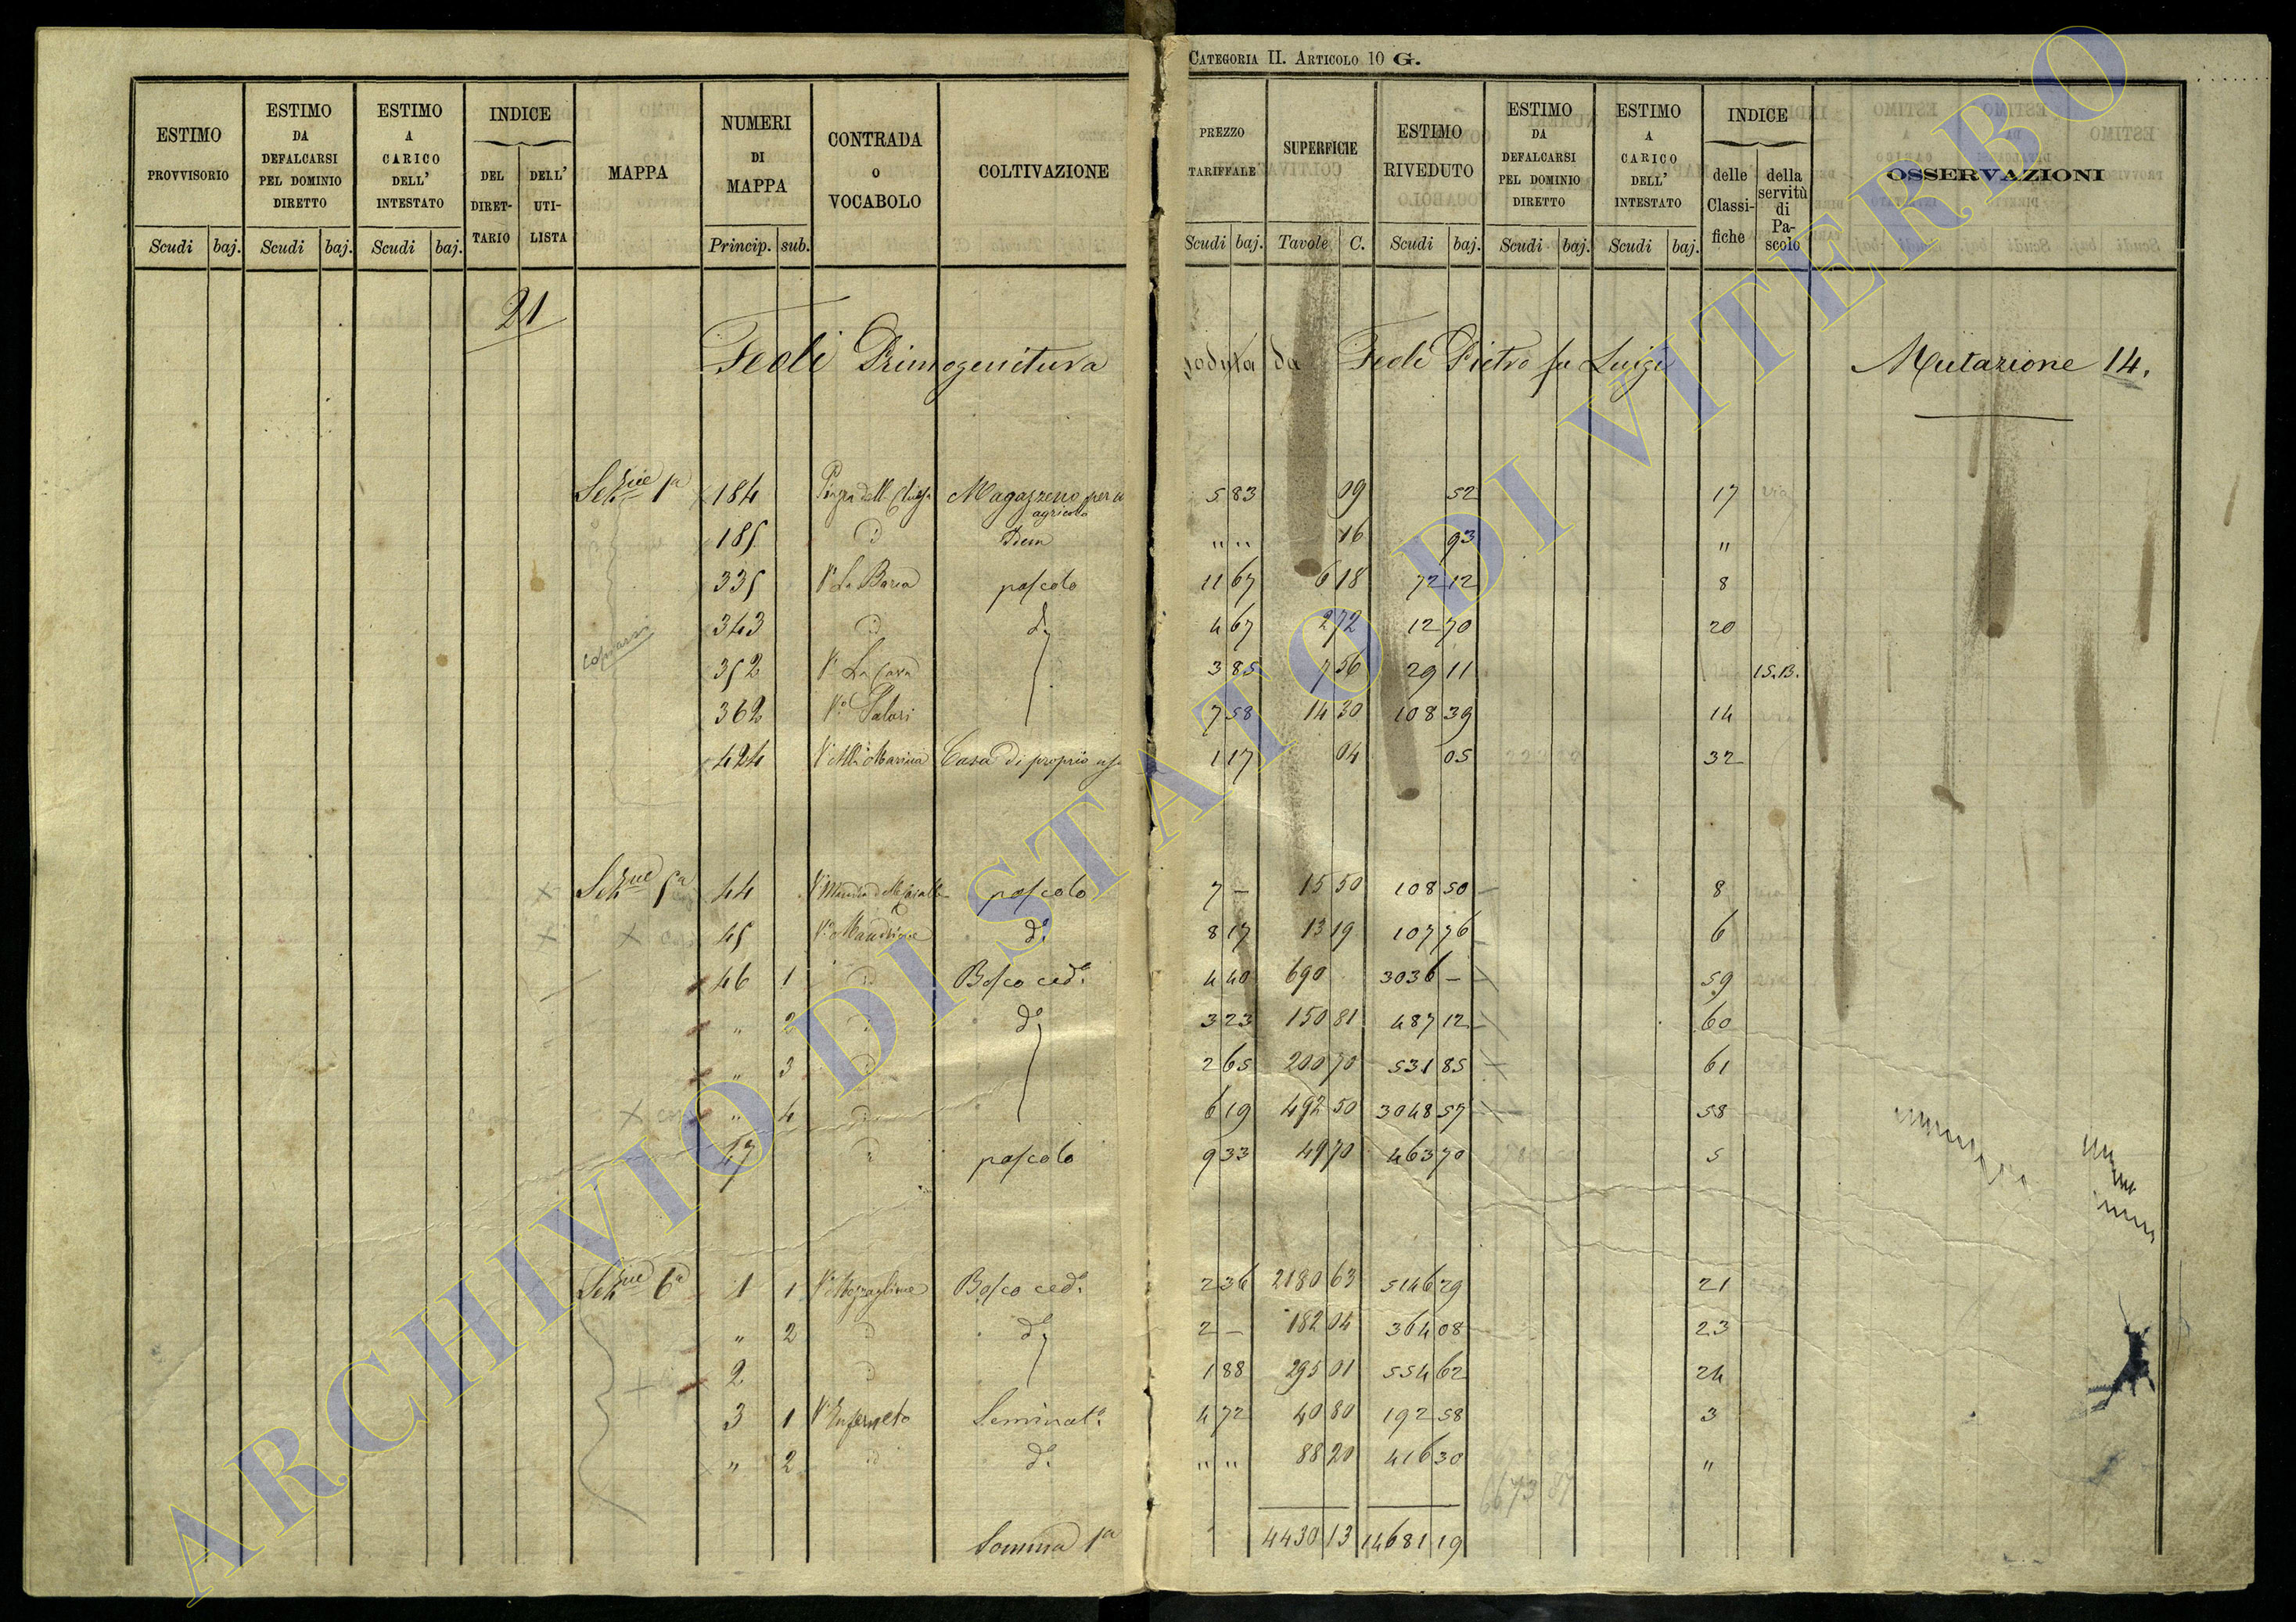 CATEGORIA II. ARTICOLO 10 G.
ESTIMO PROVVISORIO Scudi baj.
ESTIMO DA DEFALCARSI PEL DOMINIO DIRETTO Scudi baj.
ESTIMO A CARICO DELL' INTESTATO Scudi baj.
INDICE DEL DIRET- TARIO DELL' UTI- LISTA
MAPPA
NUMERI DI MAPPA Princip. sub.
CONTRADA o VOCABOLO
COLTIVAZIONE
PREZZO TARIFFALE Scudi baj.
SUPERFICIE Tavole C.
ESTIMO RIVEDUTO Scudi baj.
ESTIMO DA DEFALCARSI PEL DOMINIO DIRETTO Scudi baj.
ESTIMO A CARICO DELL' INTESTATO Scudi baj.
INDICE delle Classi- fiche della servitù di Pa- scolo
OSSERVAZIONI
21
Fedi Primogenitura goduta da Fedi Pietro fu Luigi Mutazione 14.
Sezne 1a 184 Magazzeno per agricola 5 83 09 52 17
185 Idem " " 16 93 "
335 pascolo 11 67 6 18 72 12 8
343 d. 4 67 2 72 12 70 20
352 La Cava 3 85 7 56 29 11 15.B.
362 7 58 14 30 108 39 14
424 Casa di proprio uso 1 17 04 05 32
Sezne 5a 44 pascolo 7 — 15 50 108 50 8
45 d. 8 17 13 19 107 76 6
46 1 Bosco ced. 4 40 690 3036 — 59
" 2 d. 3 23 150 81 487 12 60
" 3 2 65 200 70 531 85 61
" 4 6 19 492 50 3048 57 58
47 pascolo 9 33 49 70 463 70 5
Sezne 6a 1 1 Bosco ced. 2 36 2180 63 5146 29 21
" 2 d. 2 — 182 04 364 08 23
2 1 88 295 01 554 62 24
3 1 Seminat. 4 72 40 80 192 58 3
" 2 d. " " 88 20 416 30 "
6673 87
Somma 1a 4430 13 14681 19
ARCHIVIO DI STATO DI VITERBO